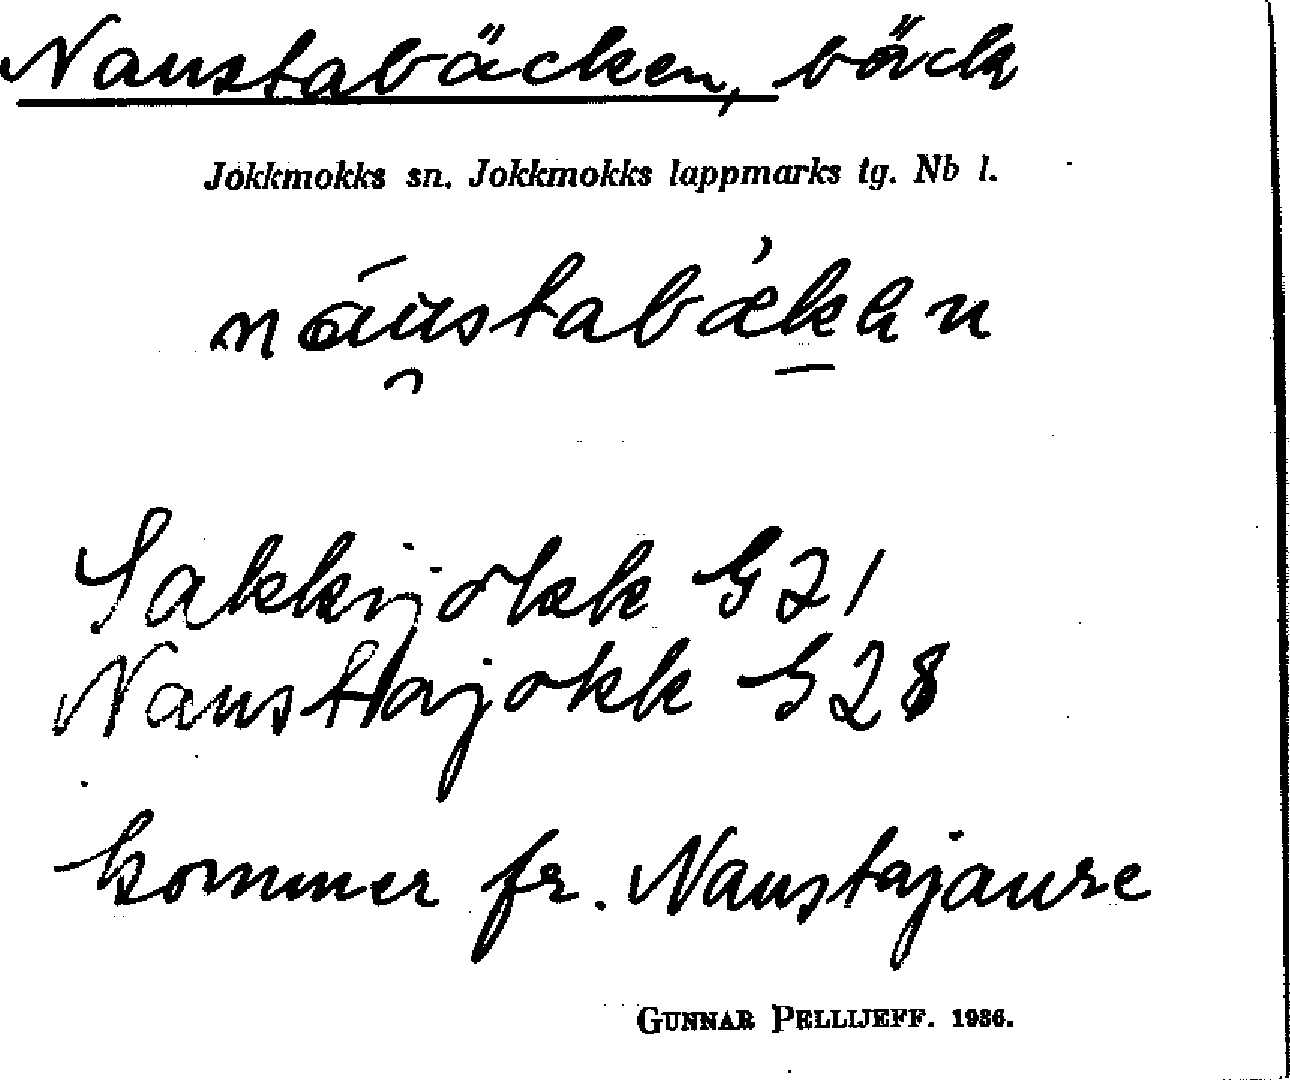 Naustabäcken, bäck
Jokkmokks sn. Jokkmokks lappmarks tg. Nb l.
Sakkijokk G 21
Naustajokk G 28
kommer fr. Naustajaure
GUNNAR PELLIJEFF. 1936.